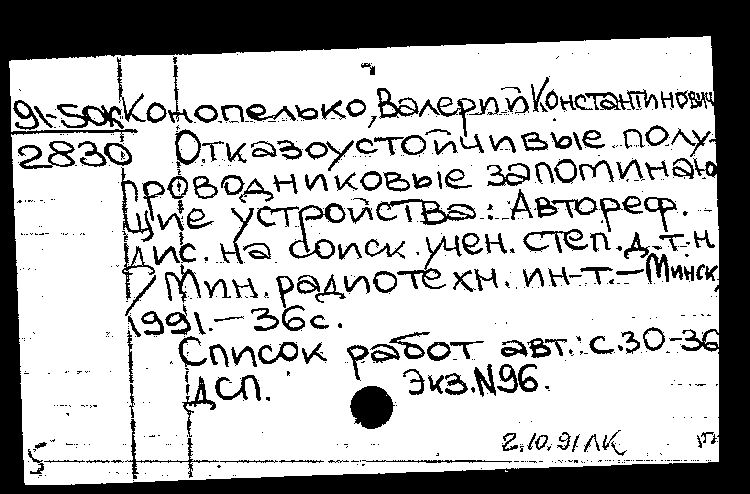 91-50к Конопелько, Валерий Константинович
2830 Отказоустойчивые полу-
проводниковые запоминаю
щие устройства: Автореф.
дис. на соиск. учен. степ. д.т.н.
/ Мин. радиотехн. ин-т. – Минск,
1991. – 36с.
Список работ авт.: с.30-36
ДСП. Экз.N96.
2.10.91 ЛК
5